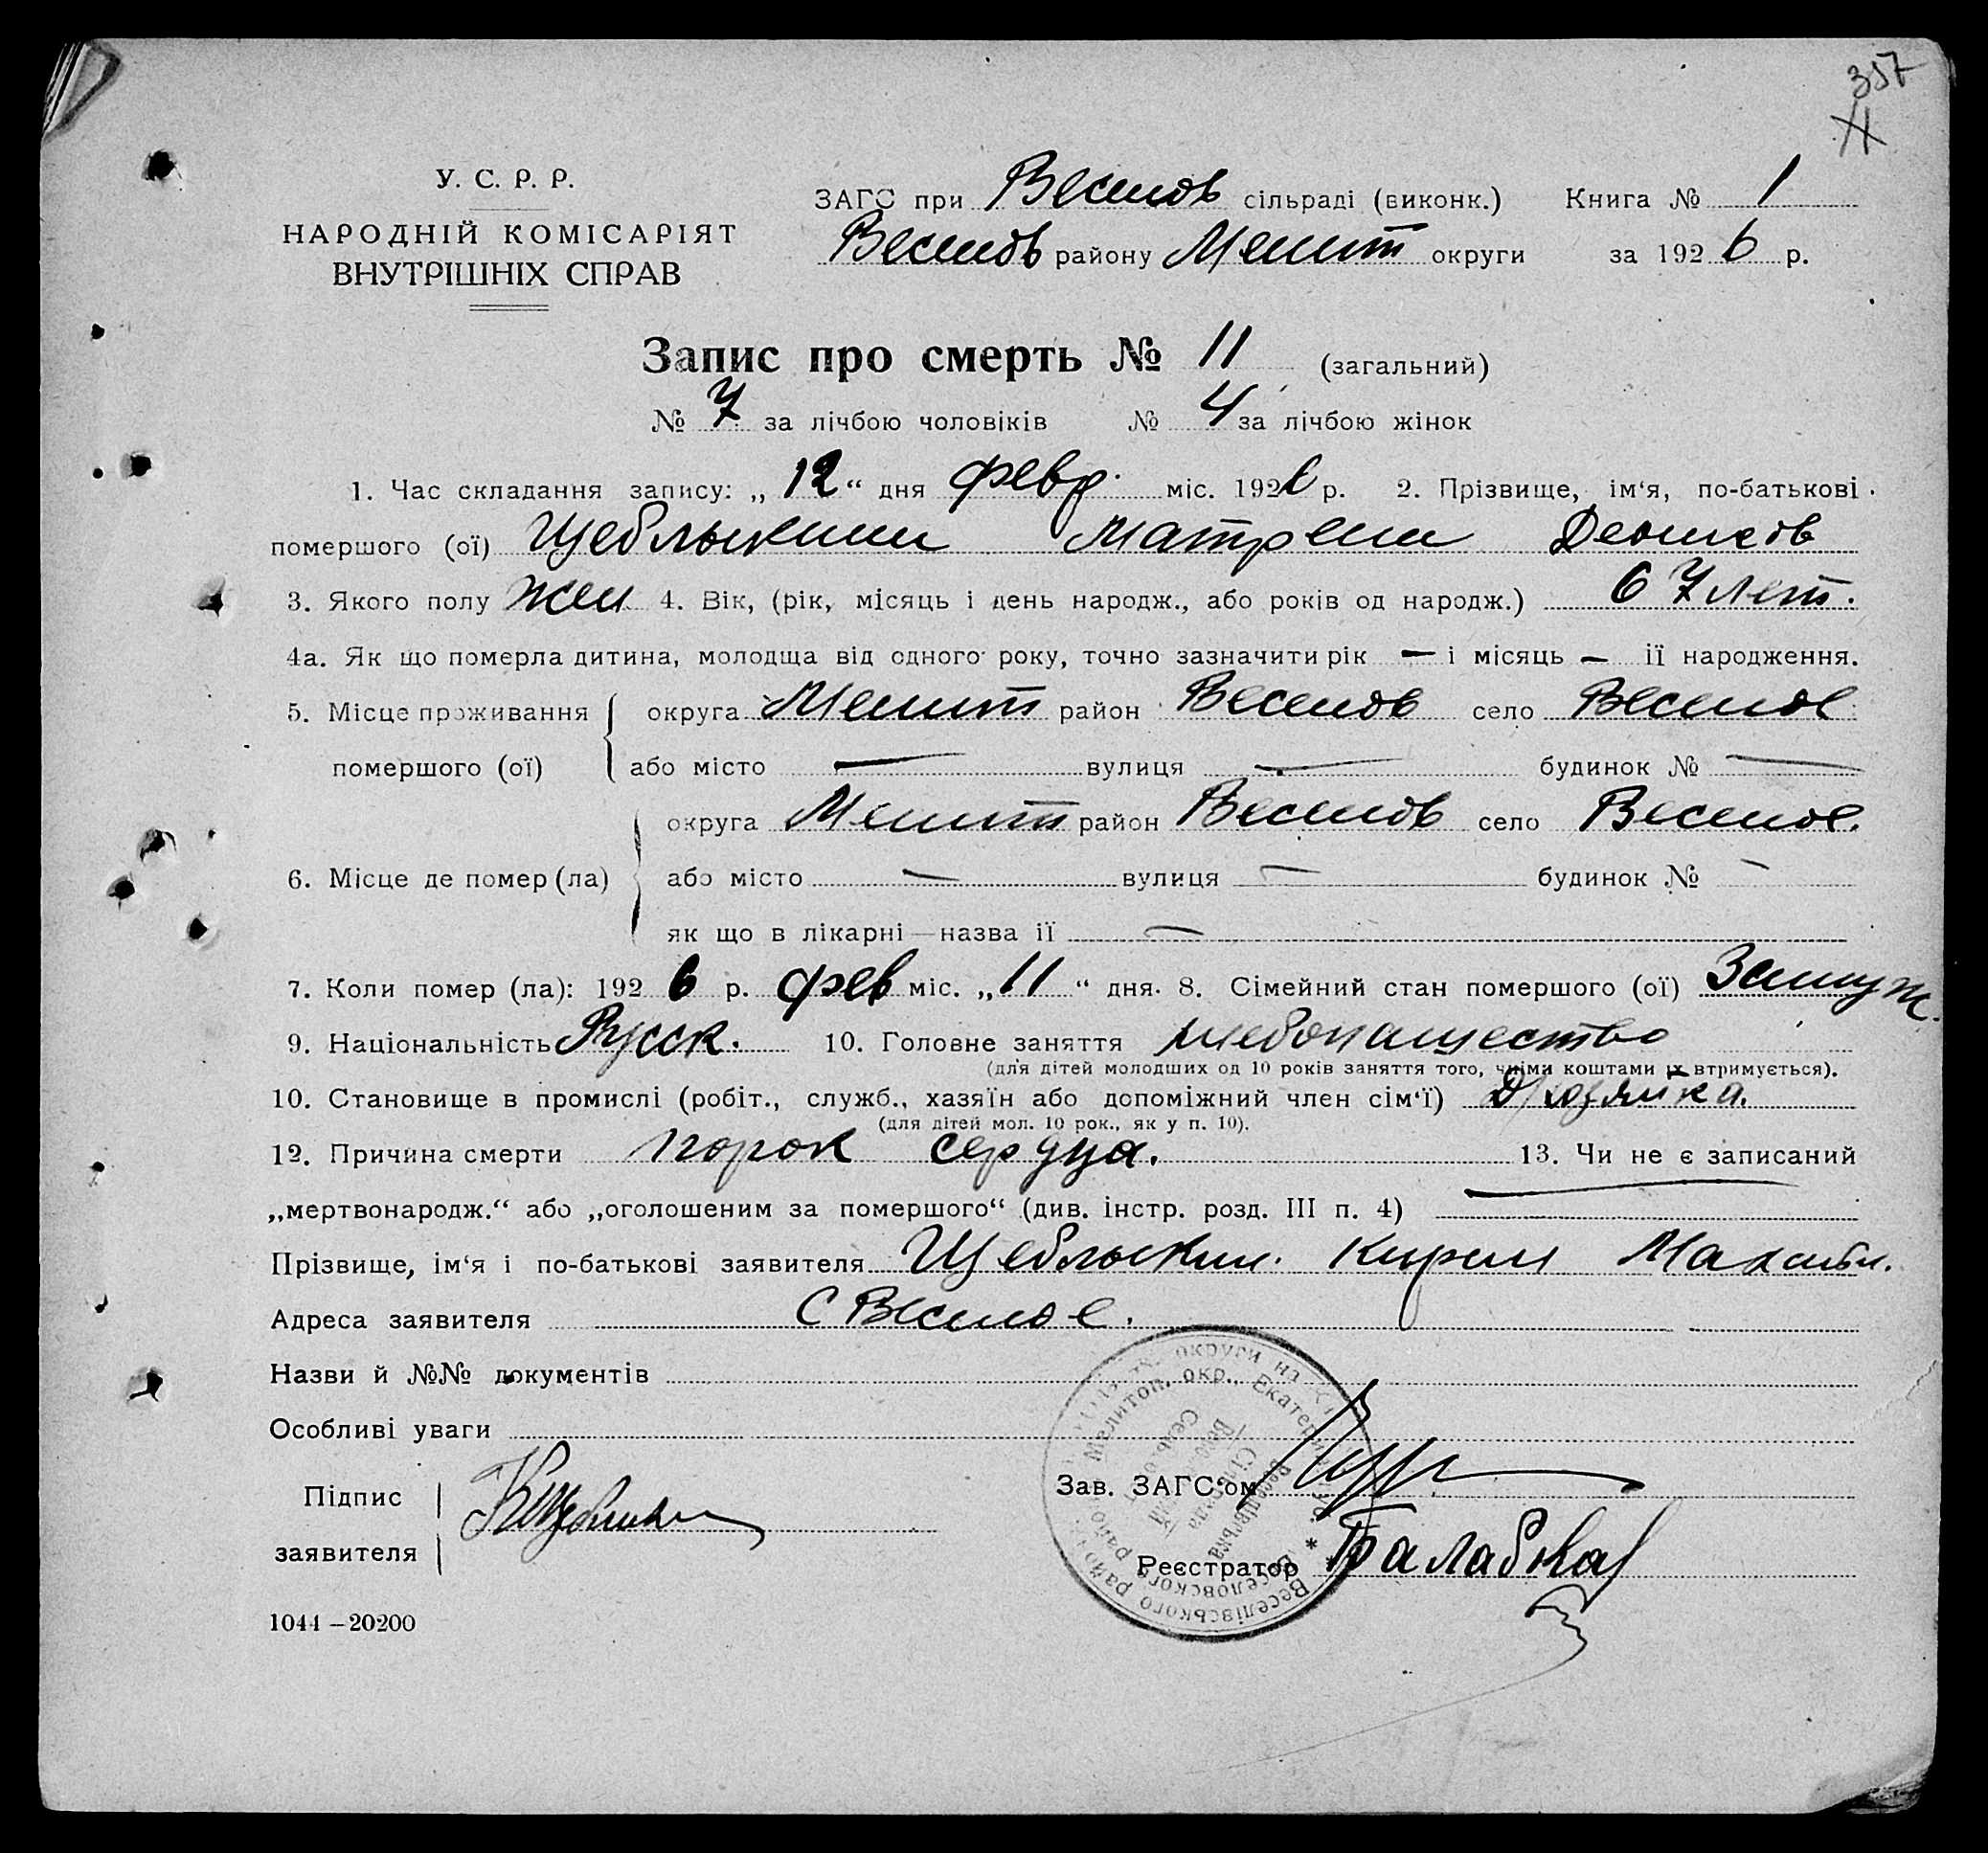 357
У. С. Р. Р.
НАРОДНІЙ КОМІСАРІЯТ
ВНУТРІШНІХ СПРАВ
ЗАГС при Веселов сільраді (виконк.) Книга № 1
Веселов району Мелит округи за 1926 р.
Запис про смерть № 11 (загальний)
№ 7 за лічбою чоловіків № 4 за лічбою жінок
1. Час складання запису: „12“ дня февр. міс. 1926 р. 2. Прізвище, ім‘я, по-батькові
помершого (ої) Щеблыкини Матрени Денисов
3. Якого полу Жен 4. Вік, (рік, місяць і день народж., або років од народж.) 67 лет.
4а. Як що померла дитина, молодща від одного року, точно зазначити рік — і місяць — її народження.
5. Місце проживання округа Мелит район Веселов село Веселое
помершого (ої) або місто — вулиця — будинок № —
округа Мелит район Веселов село Веселое.
6. Місце де помер (ла) або місто — вулиця — будинок № —
як що в лікарні — назва її —
7. Коли помер (ла): 1926 р. фев міс. „11“ дня. 8. Сімейний стан помершого (ої) Замуж.
9. Національність Русск. 10. Головне заняття хлебопашество
(для дітей молодших од 10 років заняття того, чиїми коштами їх втримується).
10. Становище в промислі (робіт., служб., хазяїн або допоміжний член сім‘ї) Д/хозяйка.
(для дітей мол. 10 рок., як у п. 10).
12. Причина смерти порок сердца. 13. Чи не є записаний
„мертвонародж.“ або „оголошеним за помершого“ (див. інстр. розд. III п. 4) —
Прізвище, ім‘я і по-батькові заявителя Щеблыкин Кирил
Адреса заявителя С Веселое.
Назви й №№ документів
Особливі уваги
Підпис
заявителя
Зав. ЗАГС‘ом
Реєстратор Балабка
Веселівського району округи на
Веселовского район Мелитоп. окр., Екатерин
1044 – 20200